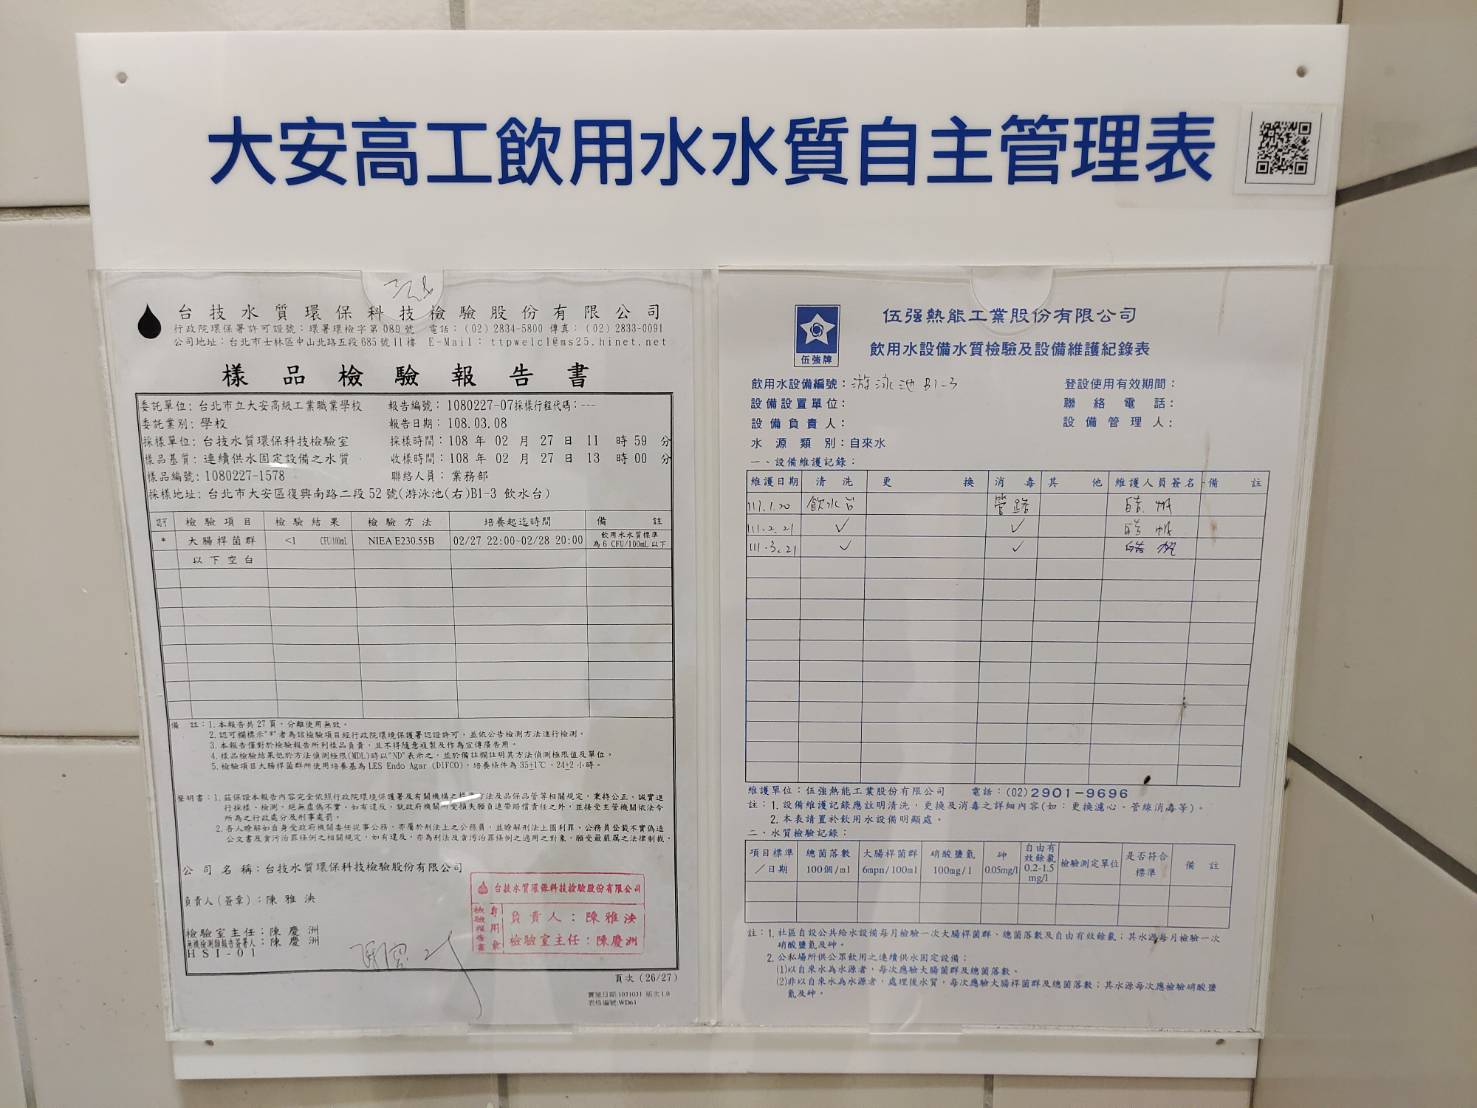 大安高工飲用水水質自主管理表
台技水質環保科技檢驗股份有限公司
行政院環保署許可證號：環署環檢字第 080 號 電話：(02) 2834-5800 傳真：(02) 2833-0091
公司地址：台北市士林區中山北路五段 685 號 11 樓 E-Mail： ttpwelcl@ms25.hinet.net
樣品檢驗報告書
委託單位：台北市立大安高級工業職業學校 報告編號：1080227-07採樣行程代碼：---
委託業別：學校 報告日期：108.03.08
採樣單位：台技水質環保科技檢驗室 採樣時間：108 年 02 月 27 日 11 時 59 分
樣品基質：連續供水固定設備之水質 收樣時間：108 年 02 月 27 日 13 時 00 分
樣品編號：1080227-1578 聯絡人員：業務部
採樣地址：台北市大安區復興南路二段 52 號(游泳池(右)B1-3 飲水台)
認可 檢驗項目 檢驗結果 檢驗方法 培養起迄時間 備註
* 大腸桿菌群 <1 CFU/100mL NIEA E230.55B 02/27 22:00-02/28 20:00 飲用水水質標準為 6 CFU/100mL 以下
以下空白
備 註：1. 本報告共 27 頁，分離使用無效。
2. 認可欄標示"*"者為該檢驗項目經行政院環境保護署認證許可，並依公告檢測方法進行檢測。
3. 本報告僅對於檢驗報告所列樣品負責，且不得隨意複製及作為宣傳廣告用。
4. 樣品檢驗結果低於方法偵測極限(MDL)時以"ND"表示之，並於備註欄註明其方法偵測極限值及單位。
5. 檢驗項目大腸桿菌群所使用培養基為 LES Endo Agar (DIFCO)，培養條件為 35±1℃、24±2 小時。
聲明書：1. 茲保證本報告內容完全依照行政院環境保護署及有關機構之標準方法及品保品管等相關規定，秉持公正、誠實進
行採樣、檢測。絕無虛偽不實，如有違反，就政府機關所受損失願負連帶賠償責任之外，並接受主管機關依法令
所為之行政處分及刑事處罰。
2. 吾人瞭解如自身受政府機關委任從事公務，亦屬於刑法上之公務員，並瞭解刑法上圖利罪、公務員登載不實偽造
公文書及貪污治罪條例之相關規定，如有違反，亦為刑法及貪污治罪條例之適用之對象，願受最嚴厲之法律制裁。
公 司 名 稱：台技水質環保科技檢驗股份有限公司
負責人（簽章）：陳 雅 泱
檢驗室主任：陳 慶 洲
無機檢測類報告簽署人：陳 慶 洲
HSI-01
台技水質環保科技檢驗股份有限公司
檢驗報告書專用章
負責人：陳雅泱
檢驗室主任：陳慶洲
頁次 (26/27)
表格編號:WD61
伍強牌
伍强熱能工業股份有限公司
飲用水設備水質檢驗及設備維護紀錄表
飲用水設備編號：游泳池 B1-3 登設使用有效期間：
設備設置單位： 聯絡電話：
設備負責人： 設備管理人：
水 源 類 別：自來水
一、設備維護記錄：
維護日期 清洗 更換 消毒 其他 維護人員簽名 備註
111.1.20 飲水台 管路
111.2.21 ✓ ✓
111.3.21 ✓ ✓
維護單位：伍强熱能工業股份有限公司 電話：(02)2901-9696
註：1. 設備維護記錄應註明清洗、更換及消毒之詳細內容(如：更換濾心、管線消毒等)。
2. 本表請置於飲用水設備明顯處。
二、水質檢驗記錄：
項目標準／日期 總菌落數 100個/ml 大腸桿菌群 6mpn/100ml 硝酸鹽氮 100mg/l 砷 0.05mg/l 自由有效餘氯 0.2-1.5 mg/l 檢驗測定單位 是否符合標準 備註
註：1. 社區自設公共給水設備每月檢驗一次大腸桿菌群、總菌落數及自由有效餘氯；其水源每月檢驗一次
硝酸鹽氮及砷。
2. 公私場所供公眾飲用之連續供水固定設備：
(1)以自來水為水源者，每次應驗大腸菌群及總菌落數。
(2)非以自來水為水源者，處理後水質，每次應驗大腸桿菌群及總菌落數；其水源每次應檢驗硝酸鹽
氮及砷。